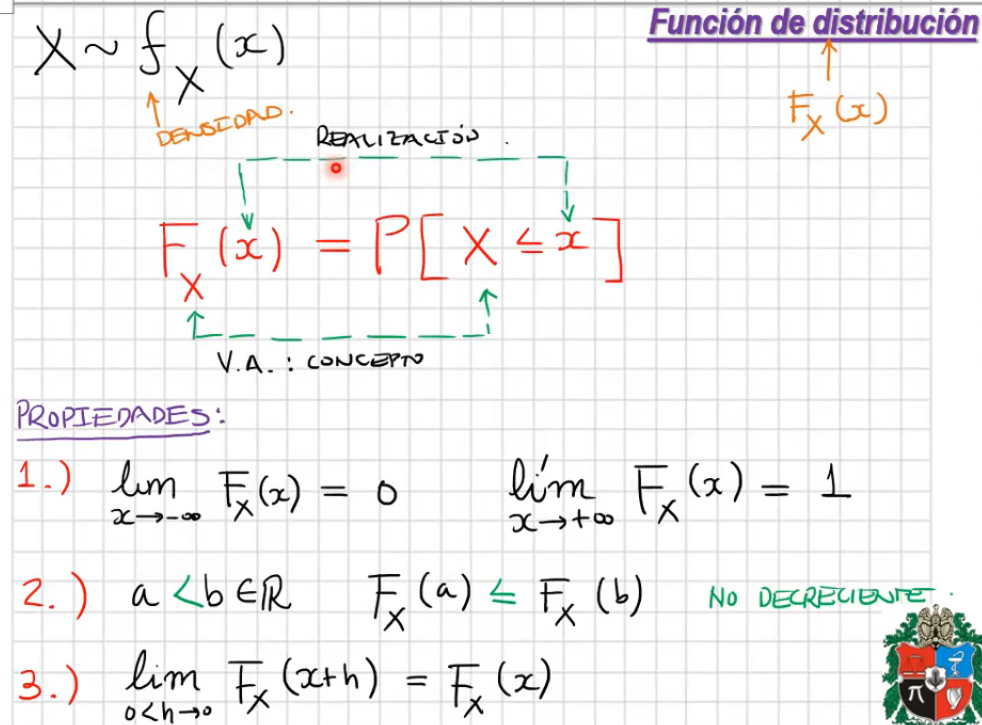 Función de distribución
X ~ f_X (x)
F_X (x)
DENSIDAD.
REALIZACIÓN.
F_X (x) = P[X ≤ x]
V.A. : CONCEPTO
PROPIEDADES:
1.) lim x→-∞ F_X(x) = 0 lím x→+∞ F_X(x) = 1
2.) a < b ∈ ℝ F_X(a) ≤ F_X(b) NO DECRECIENTE.
3.) lim 0<h→0 F_X(x+h) = F_X(x)
π